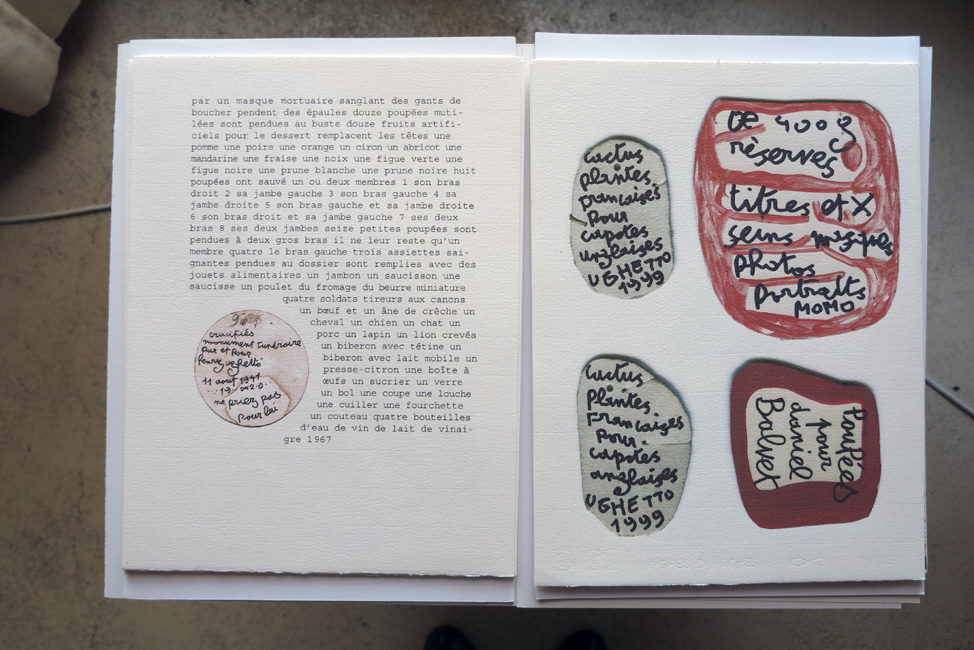 par un masque mortuaire sanglant des gants de
boucher pendent des épaules douze poupées muti-
lées sont pendues au buste douze fruits artifi-
ciels pour le dessert remplacent les têtes une
pomme une poire une orange un ciron un abricot une
mandarine une fraise une noix une figue verte une
figue noire une prune blanche une prune noire huit
poupées ont sauvé un ou deux membres 1 son bras
droit 2 sa jambe gauche 3 son bras gauche 4 sa
jambe droite 5 son bras gauche et sa jambe droite
6 son bras droit et sa jambe gauche 7 ses deux
bras 8 ses deux jambes seize petites poupées sont
pendues à deux gros bras il ne leur reste qu'un
membre quatre le bras gauche trois assiettes sai-
gnantes pendues au dossier sont remplies avec des
jouets alimentaires un jambon un saucisson une
saucisse un poulet du fromage du beurre miniature
quatre soldats tireurs aux canons
un bœuf et un âne de crèche un
cheval un chien un chat un
porc un lapin un lion crevés
un biberon avec tétine un
biberon avec lait mobile un
presse-citron une boîte à
œufs un sucrier un verre
un bol une coupe une louche
une cuiller une fourchette
un couteau quatre bouteilles
d'eau de vin de lait de vinai-
gre 1967
crucifiés
monument funéraire
Par et Pour
henry ughetto
11 août 1941
ne priez pas
pour lui
cactus
plantes
françaises
Pour
capotes
anglaises
UGHETTO
1999
De 400g
réserves
titres et X
seins
photos
portraits
MOMO
cactus
plantes
Françaises
Pour
capotes
anglaises
UGHETTO
1999
Poupées
pour
daniel
Balvet